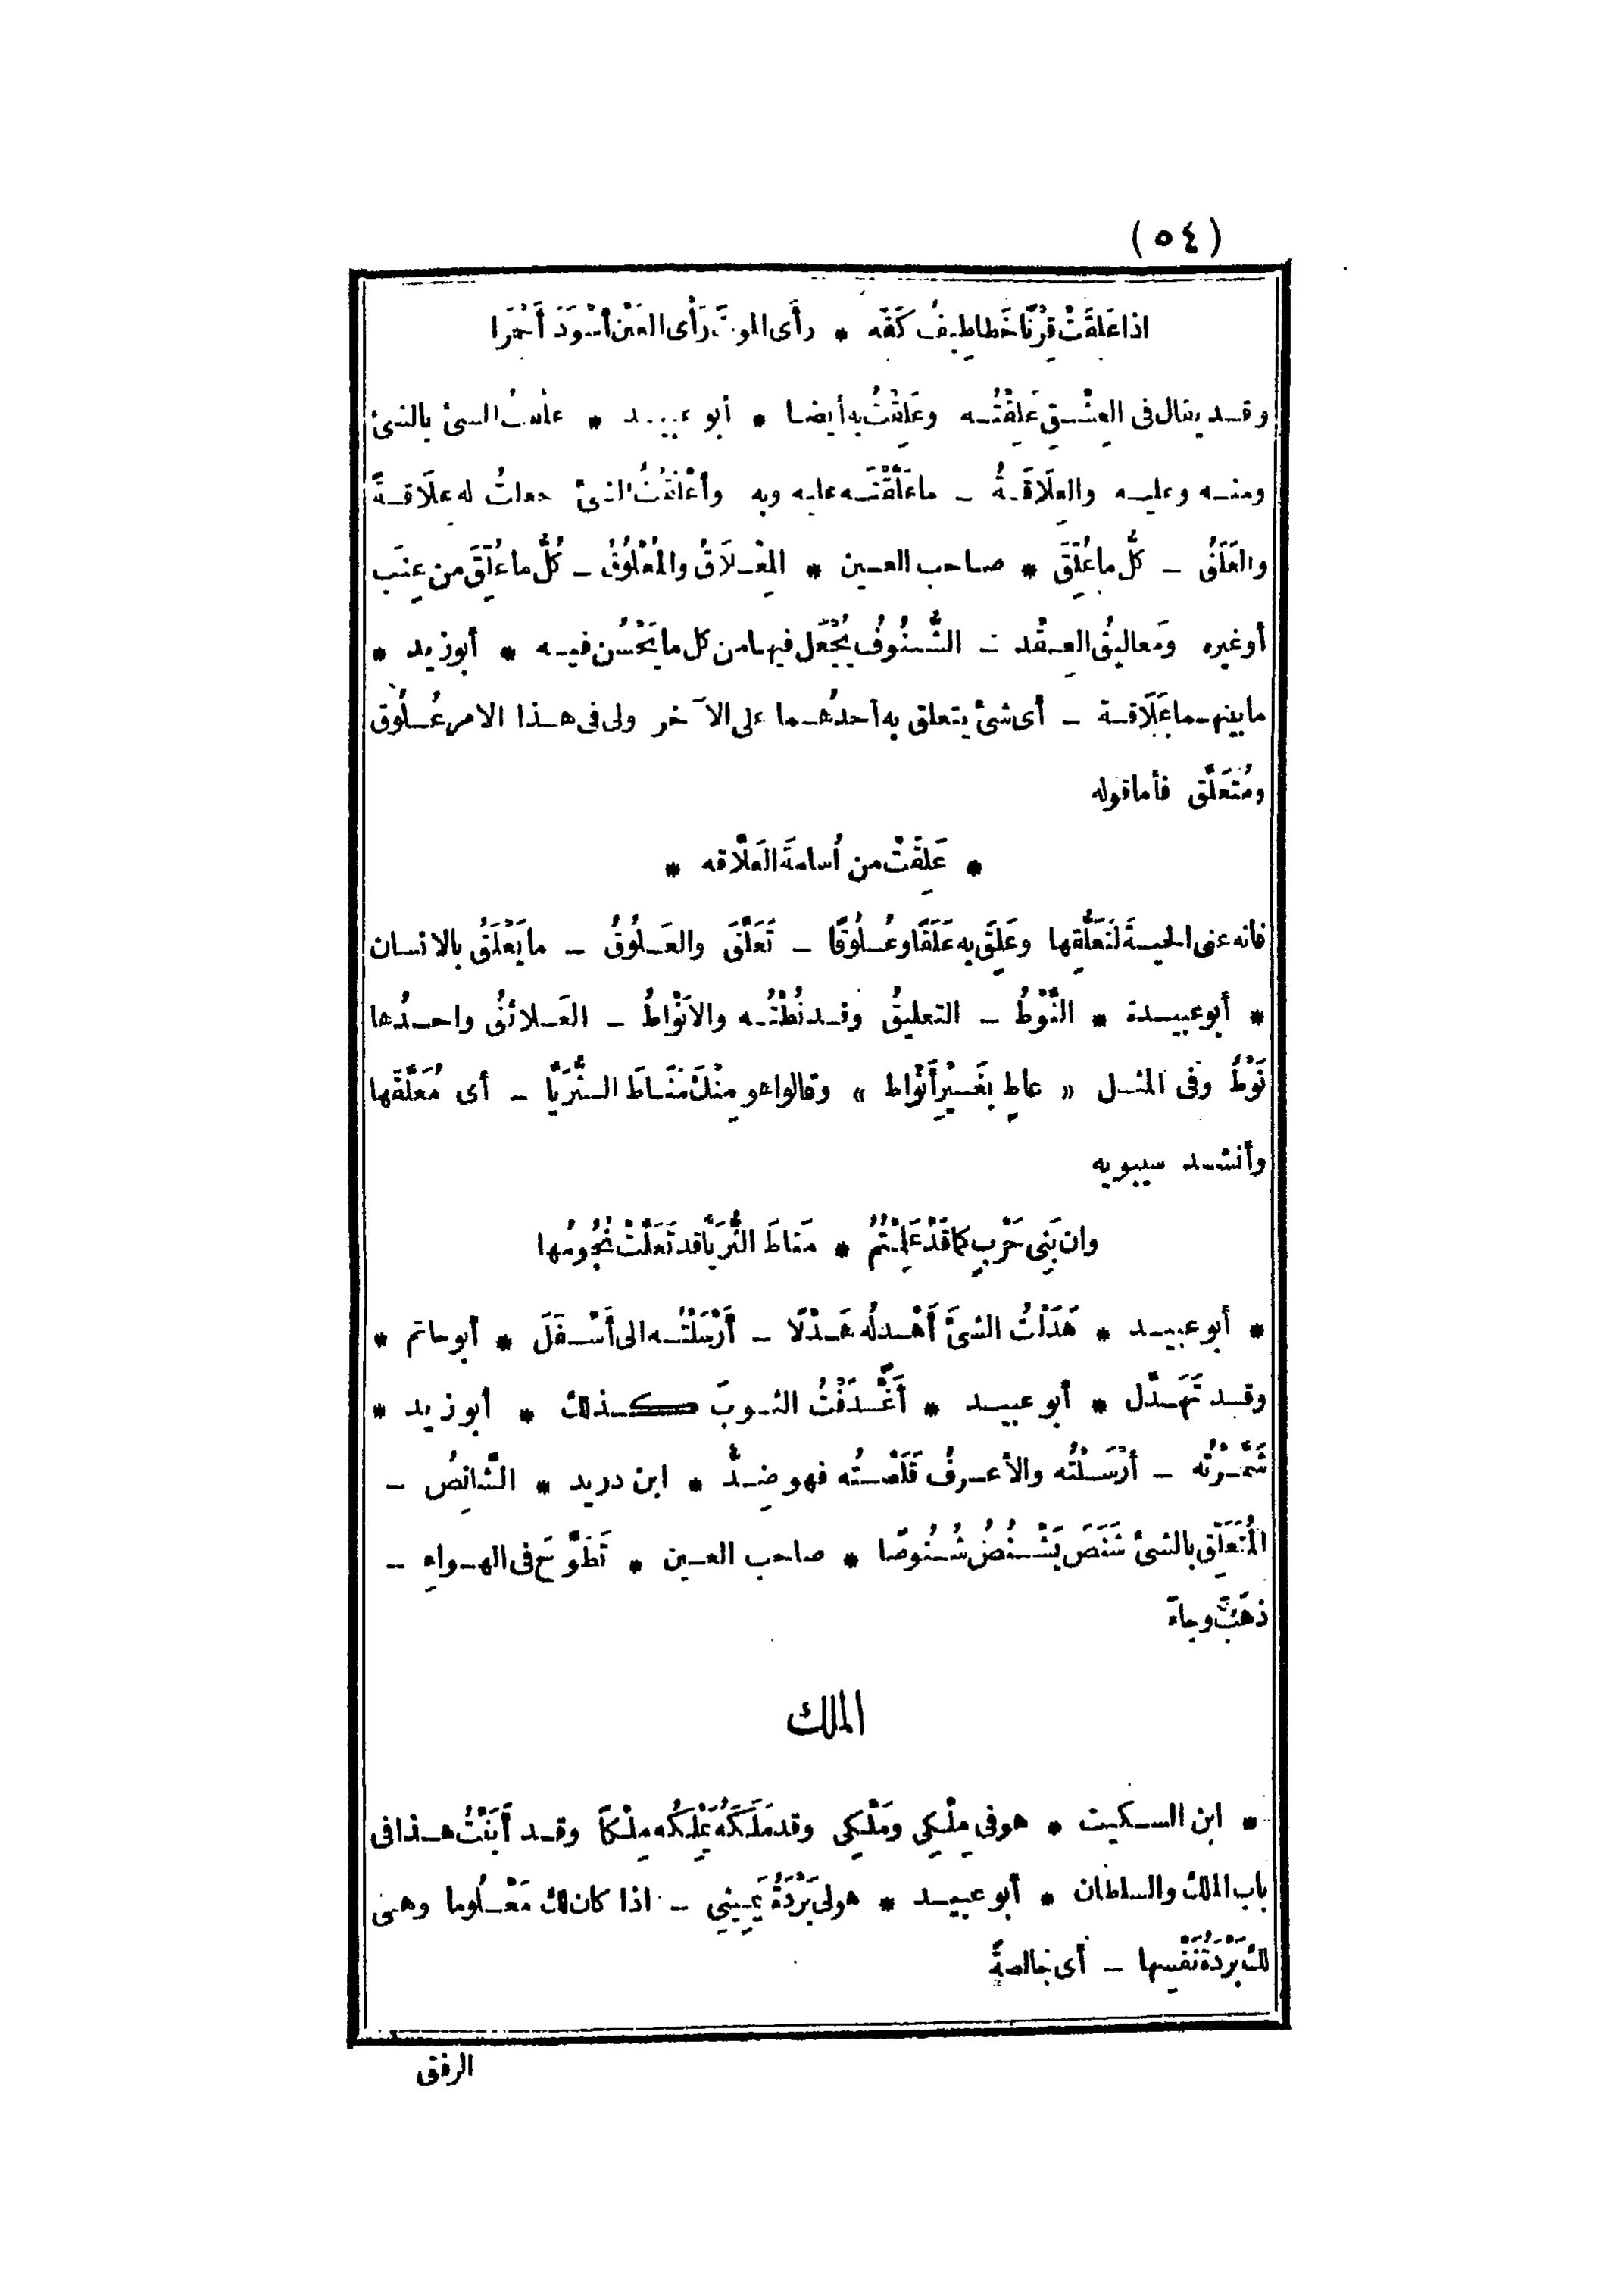 (٥٤)
اذا عَلِقَتْ قِرْنًا خَطاطِيفُ كَفّه * رأى الموتَ رَأْى العَيْن أَسْوَدَ أَحْمَرا
وقد يقال فى العِشْقِ عَلِقْتُه وعَلِقْتُ به أيضا * أبو عبيد * علقتُ الشئ بالشئ
ومنه وعليه والعِلَاقَةُ - ما عَلَّقْتَه عليه وبه وأَعْلَقْتُ الشئَ جعلتُ له عِلَاقةً
والعَلَقُ - كُلُّ ما عُلِّقَ * صاحب العين * المِعْلَاقُ والمُعْلُوقُ - كُلُّ ما عُلِّقَ من عِنَب
أو غيره ومَعاليقُ العِقْد - الشُّنُوفُ يُجْعَل فيها من كل ما يَحْسُن فيه * أبو زيد *
ما بينهما عَلَاقة - أى شئ يتعلق به أحدُهما على الآخر ولى فى هذا الامر عُلُوق
ومُتَعَلَّق فأما قوله
* عَلِقَتْ من أُسامةَ العَلَّاقه *
فانه عنى الحيةَ لتَعَلُّقِها وعَلِقَ به عَلَقًا وعُلُوقًا - تَعَلَّقَ والعَلُوقُ - ما يَعْلَقُ بالانسان
* أبو عبيدة * النَّوْطُ - التعليقُ وقد نُطْتُه والاَنْواطُ - العَلائقُ واحدُها
نَوْطٌ وفى المثل « عاطٍ بغَيْرِ أَنْواط » وقالوا هو مِنْكَ مَنَاطَ الثُّرَيَّا - أى مُعَلَّقَها
وأنشد سيبويه
وان بَنِى حَرْبٍ كما قَدْ عَلِمْتُمُ * مَناطَ الثُّرَيَّا قد تَعَلَّتْ نُجُومُها
* أبو عبيد * هَدَلْتُ الشئَ أَهْدِلُه هَدْلًا - أَرْسَلْتُه الى أَسْفَلَ * أبو حاتم *
وقد تَهَدَّل * أبو عبيد * أَغْدَفْتُ الثوبَ كذلك * أبو زيد *
شَمَّرْتُه - أرْسَلْتُه والأعرفُ قَلَّصْتُه فهو ضِدٌّ * ابن دريد * الشَّانِصُ -
المُتَعَلِّق بالشئ شَنَصَ يَشْنُصُ شُنُوصًا * صاحب العين * تَطَوَّحَ فى الهواءِ -
ذهَبَ وجاءَ
الملك
* ابن السكيت * هو فى مِلْكِى ومَلْكِى وقد مَلَكَهُ يَمْلِكُه مِلْكًا وقد أَبَنْتُ هذا فى
باب الملك والسلطان * أبو عبيد * هو لى بَرْدَةُ يَمِينِى - اذا كان لك مَعْلُوما وهى
لك بَرْدَةُ نَفْسِها - أى خالصةً
الرفق